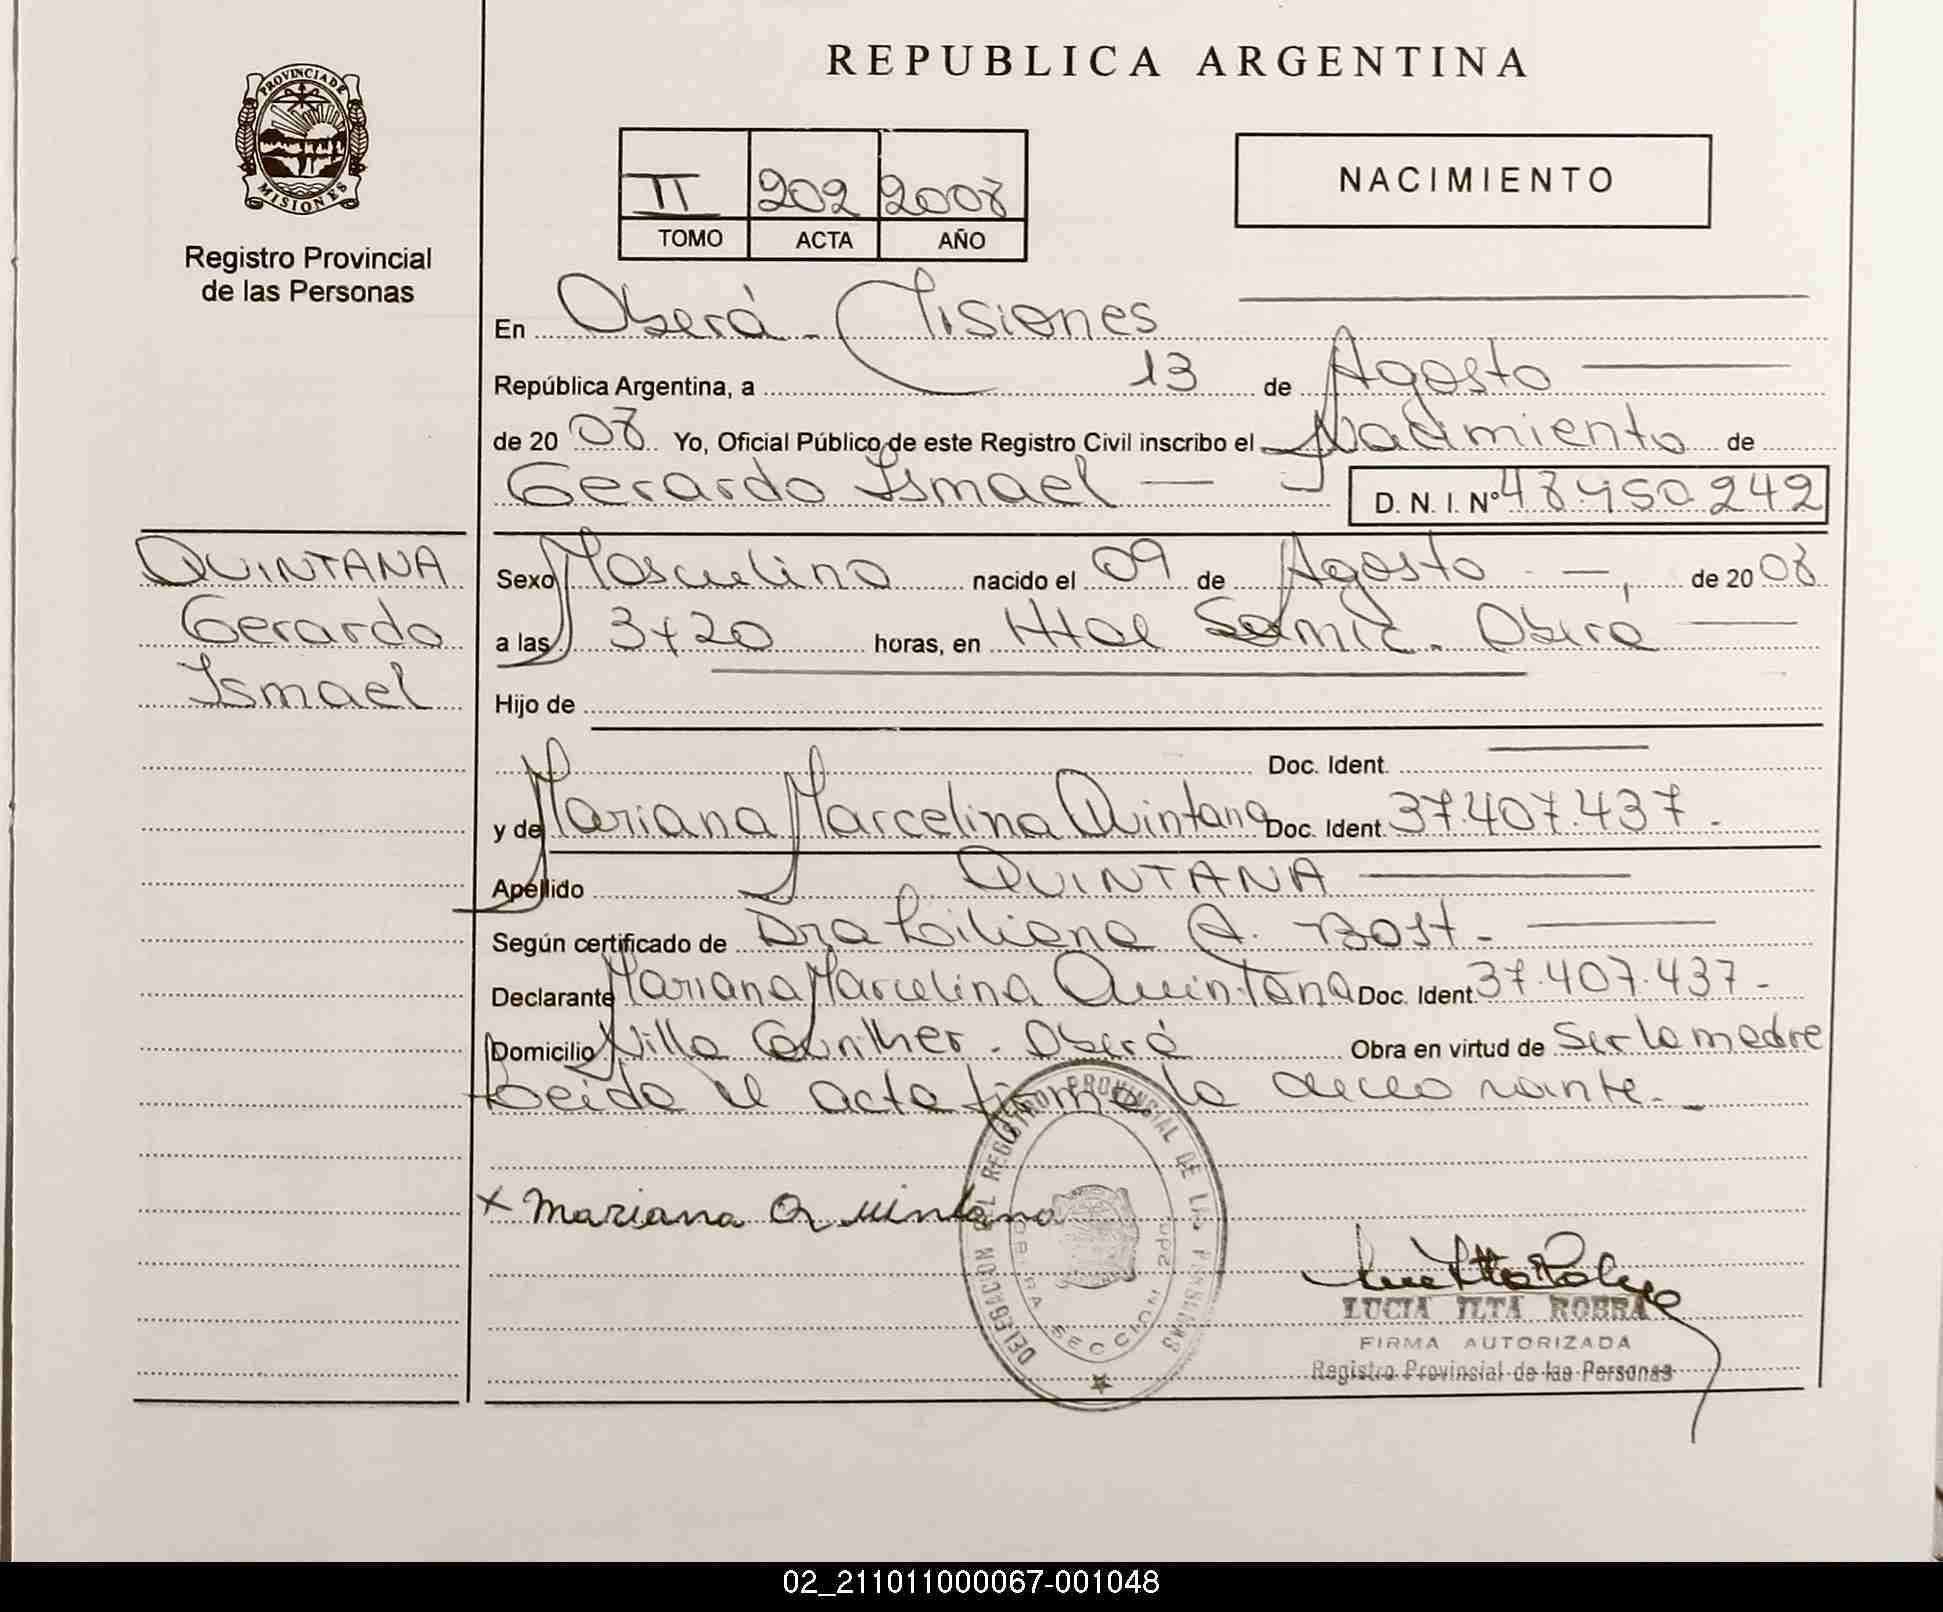 REPUBLICA ARGENTINA
PROVINCIA DE MISIONES
Registro Provincial
de las Personas
II 202 2008
TOMO ACTA AÑO
NACIMIENTO
En Oberá - Misiones
República Argentina, a 13 de Agosto
de 2008 Yo, Oficial Público de este Registro Civil inscribo el Nacimiento de
Gerardo Ismael D. N. I. Nº 48.450.242
QUINTANA
Gerardo
Ismael
Sexo Masculino nacido el 09 de Agosto de 2008
a las 3+20 horas, en Htal Samic. Oberá
Hijo de
Doc. Ident.
y de Mariana Marcelina Quintana Doc. Ident. 37.407.437.
Apellido QUINTANA
Según certificado de Dra Liliana A. Bost.
Declarante Mariana Marcelina Quintana Doc. Ident. 37.407.437-
Domicilio Villa Gunther. Oberá Obra en virtud de Ser la madre
Leida el acta firma la declarante.
x Mariana Quintana
DELEGACION DEL REGISTRO PROVINSIAL DE LAS PERSONAS
SECCION
LUCIA ILTA ROBRA
FIRMA AUTORIZADA
Registro Provinsial de las Personas
02_211011000067-001048